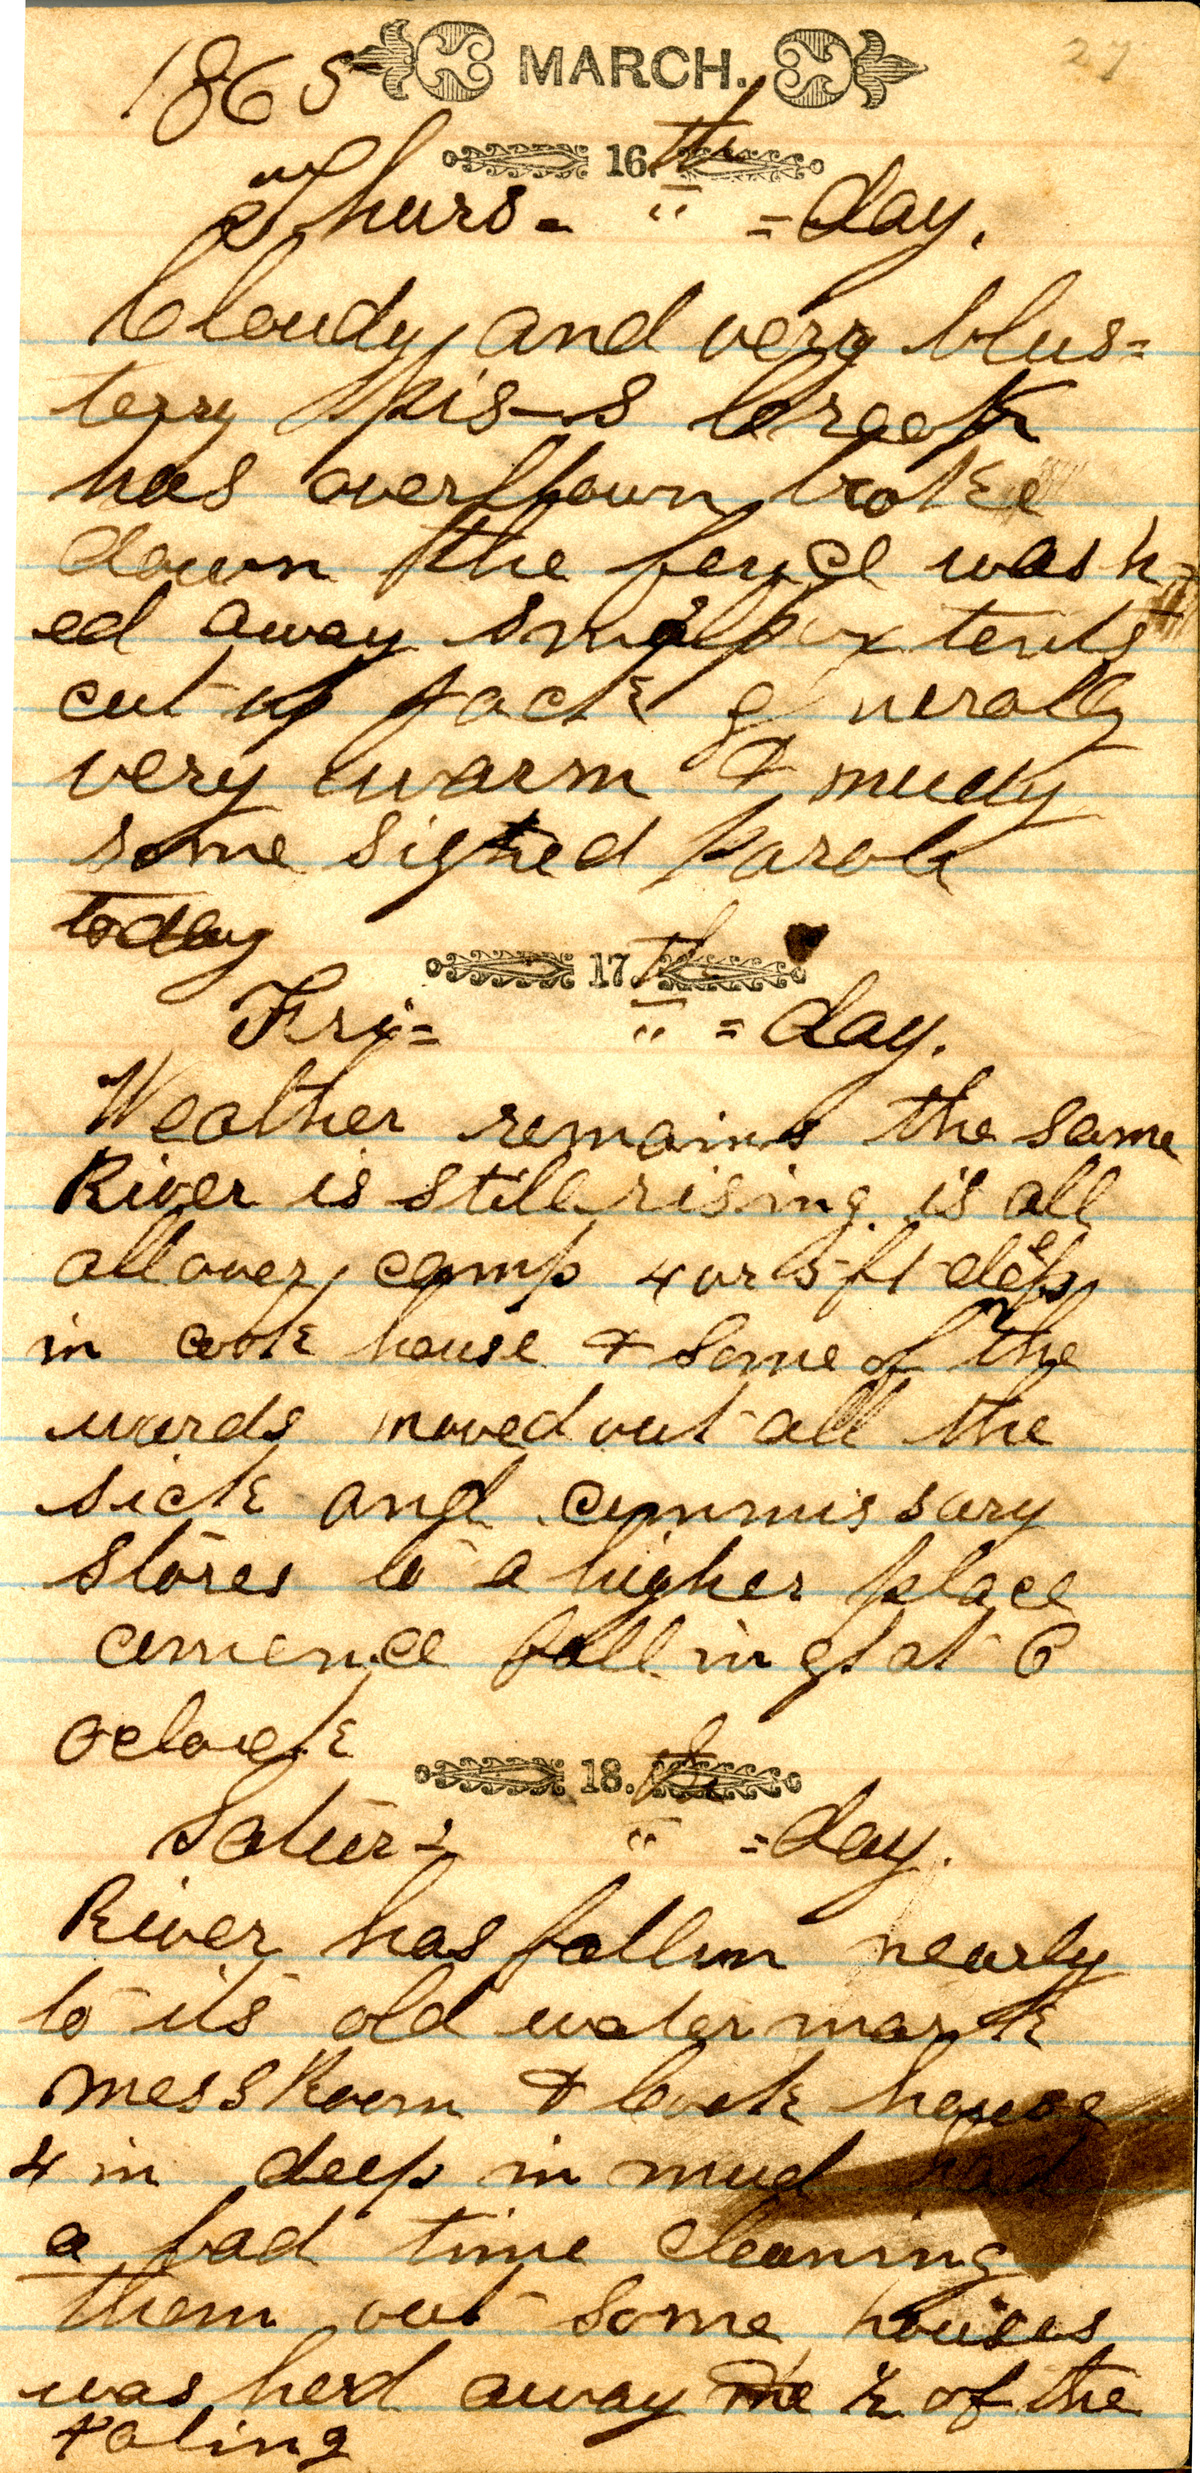 27
1865 MARCH.
16.th
Thurs= " =day.
Cloudy and very blus=
terry creek
has overflown broke
down the fence wash=
ed away smalpox tents
cut up Jack generally
very warm & mudy
some signed parole
today
17.th
Fri= " =day.
Weather remains the same
River is still rising is all
all over camp 4 or 5 ft deep
in cook house & some of the
wards moved out all the
sick and commissary
stores to a higher place
comence falling at 6
oclock
18.th
Satur= " =day.
River has fallen nearly
to its old water mark
mess Room & Cook house
4 in deep in mud had
a bad time cleaning
them out some houses
washed away of the